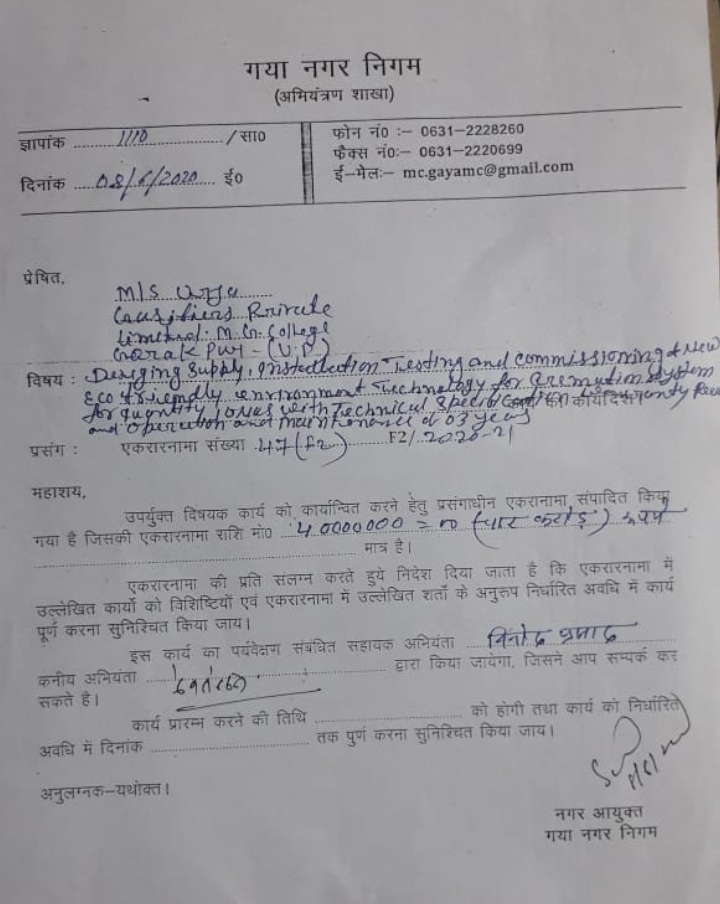 गया नगर निगम
(अभियंत्रण शाखा)
ज्ञापांक 1110 /सा0
दिनांक 08/6/2020 ई0
फोन नं0 :– 0631–2228260
फैक्स नं0:– 0631–2220699
ई–मेल:– mc.gayamc@gmail.com
प्रेषित,
M/S Urja
Gasifiers Private
Limited. M.G. College
Gorakpur - (U.P)
विषय : Desiging Supply, installation Testing and commissioning of New
Eco friendly environment Technology for Cremation System
for quantity with Technical Specification
and operation and maintenance of 03 years
प्रसंग : एकरारनामा संख्या 47(F2) F2/ 2020-21
महाशय,
उपर्युक्त विषयक कार्य को कार्यान्वित करने हेतु प्रसंगाधीन एकरानामा संपादित किया
गया है जिसकी एकरारनामा राशि मो0 40000000 = 00 (चार करोड़) रूपये
मात्र है।
एकरारनामा की प्रति संलग्न करते हुये निदेश दिया जाता है कि एकरारनामा में
उल्लेखित कार्यो को विशिष्टियों एवं एकरारनामा में उल्लेखित शर्तो के अनुरुप निर्धारित अवधि में कार्य
पूर्ण करना सुनिश्चित किया जाय।
इस कार्य का पर्यवेक्षण संबंधित सहायक अभियंता विनोद प्रसाद
कनीय अभियंता द्वारा किया जायेगा, जिसने आप सम्पर्क कर
सकते है।
कार्य प्रारम्भ करने की तिथि को होगी तथा कार्य को निर्धारित
अवधि में दिनांक तक पुर्ण करना सुनिश्चित किया जाय।
अनुलग्नक–यथोक्त।
नगर आयुक्त
गया नगर निगम